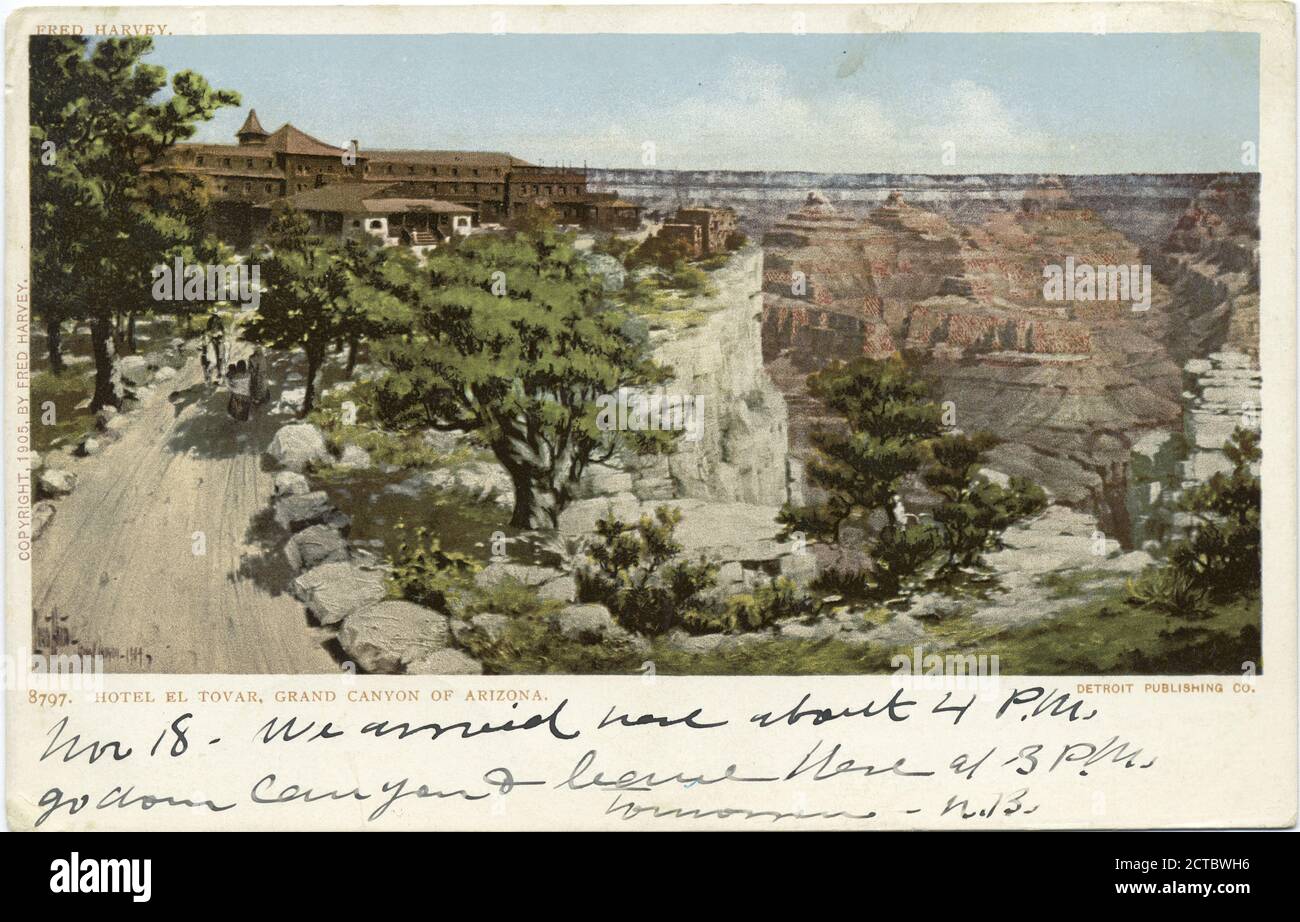 FRED HARVEY.
COPYRIGHT, 1905, BY FRED HARVEY.
8797. HOTEL EL TOVAR, GRAND CANYON OF ARIZONA.
DETROIT PUBLISHING CO.
Nov 18 - We arrived here about 4 P.M.
go down Canyon & leave here at 3 P.M.
tomorrow - N.B.
alamy
alamy
Image ID: 2CTBWH6
www.alamy.com